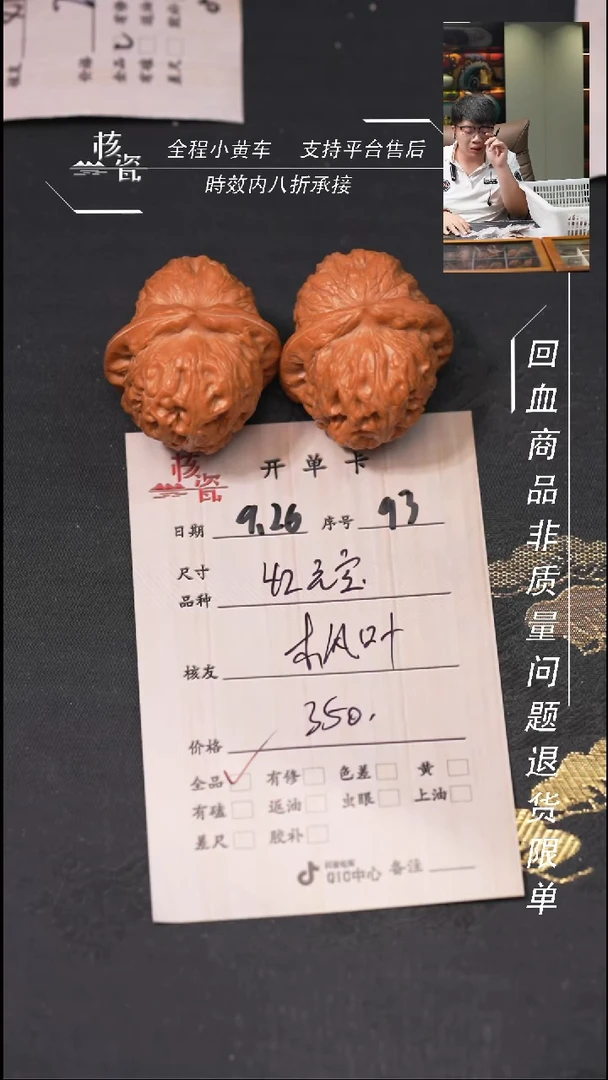 价格
全品
核瓷
全程小黄车 支持平台售后
時效内八折承接
回血商品非质量问题退货限单
核瓷
开单卡
日期 9.26 序号 93
尺寸
品种 42元宝
核友 枫叶
价格 350.
全品 有修 色差 黄
有磕 返油 虫眼 上油
差尺 胶补
QIC中心 备注